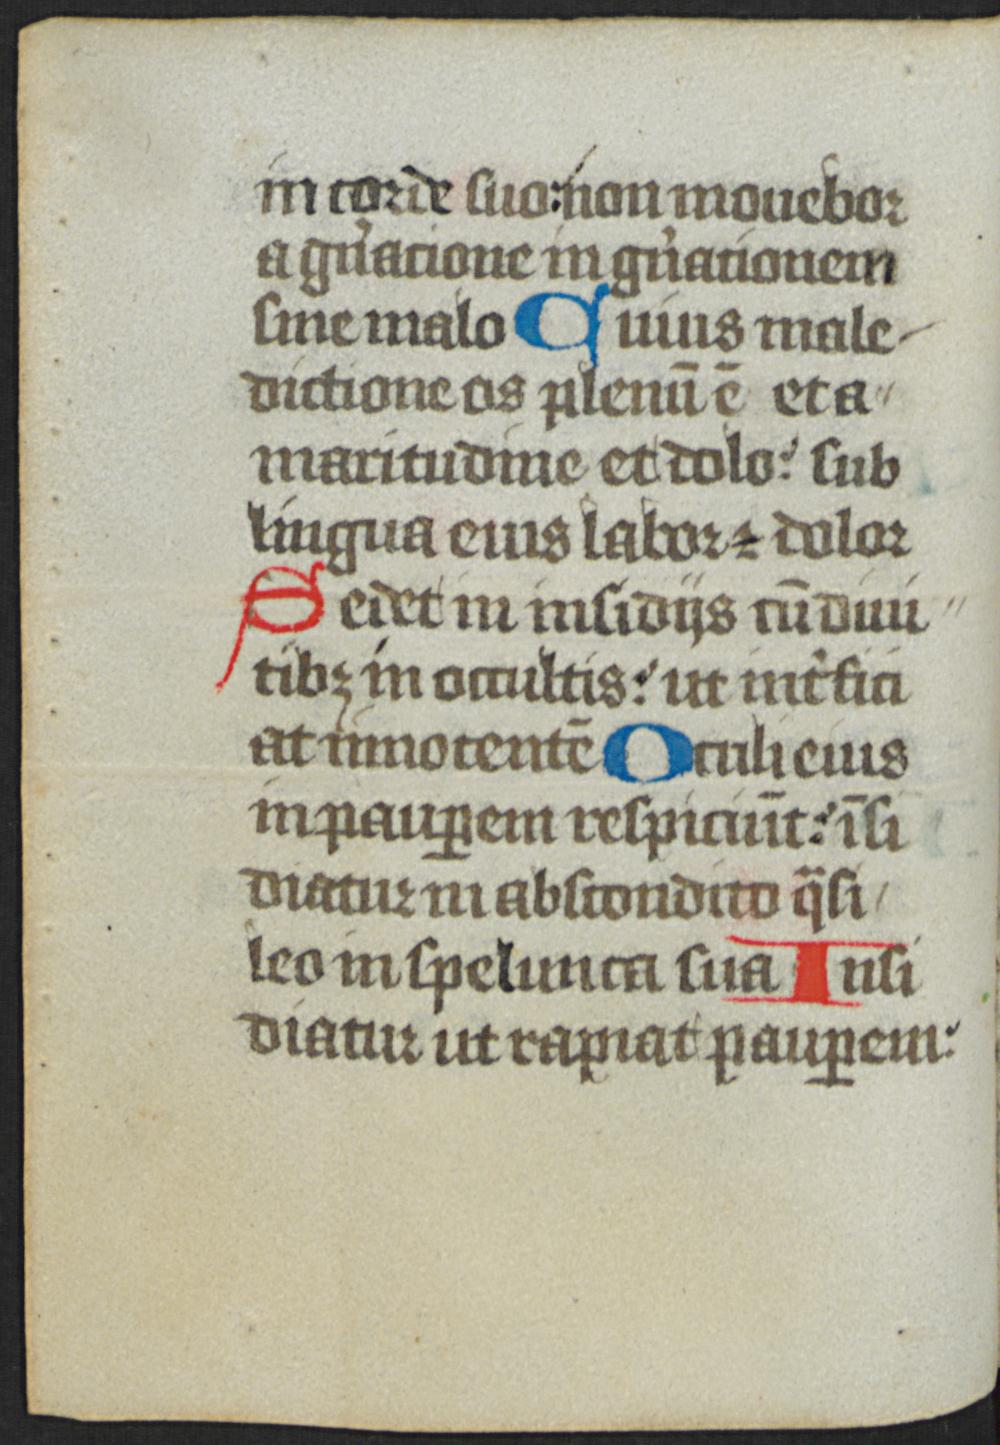 in corde suo: non mouebor
a gn̾atione in gn̾ationem
sine malo Cuius male-
dictione os plenū ē et a
maritudine et dolo: sub
lingua eius labor ⁊ dolor
Sedet in insidijs cū diui
tibꝫ in occultis: ut int̾fici
at innocentē Oculi eius
in pauꝑem respiciūt: īsi
diatur in abscondito q̈si
leo in spelunca sua Insi
diatur ut rapiat pauꝑem: